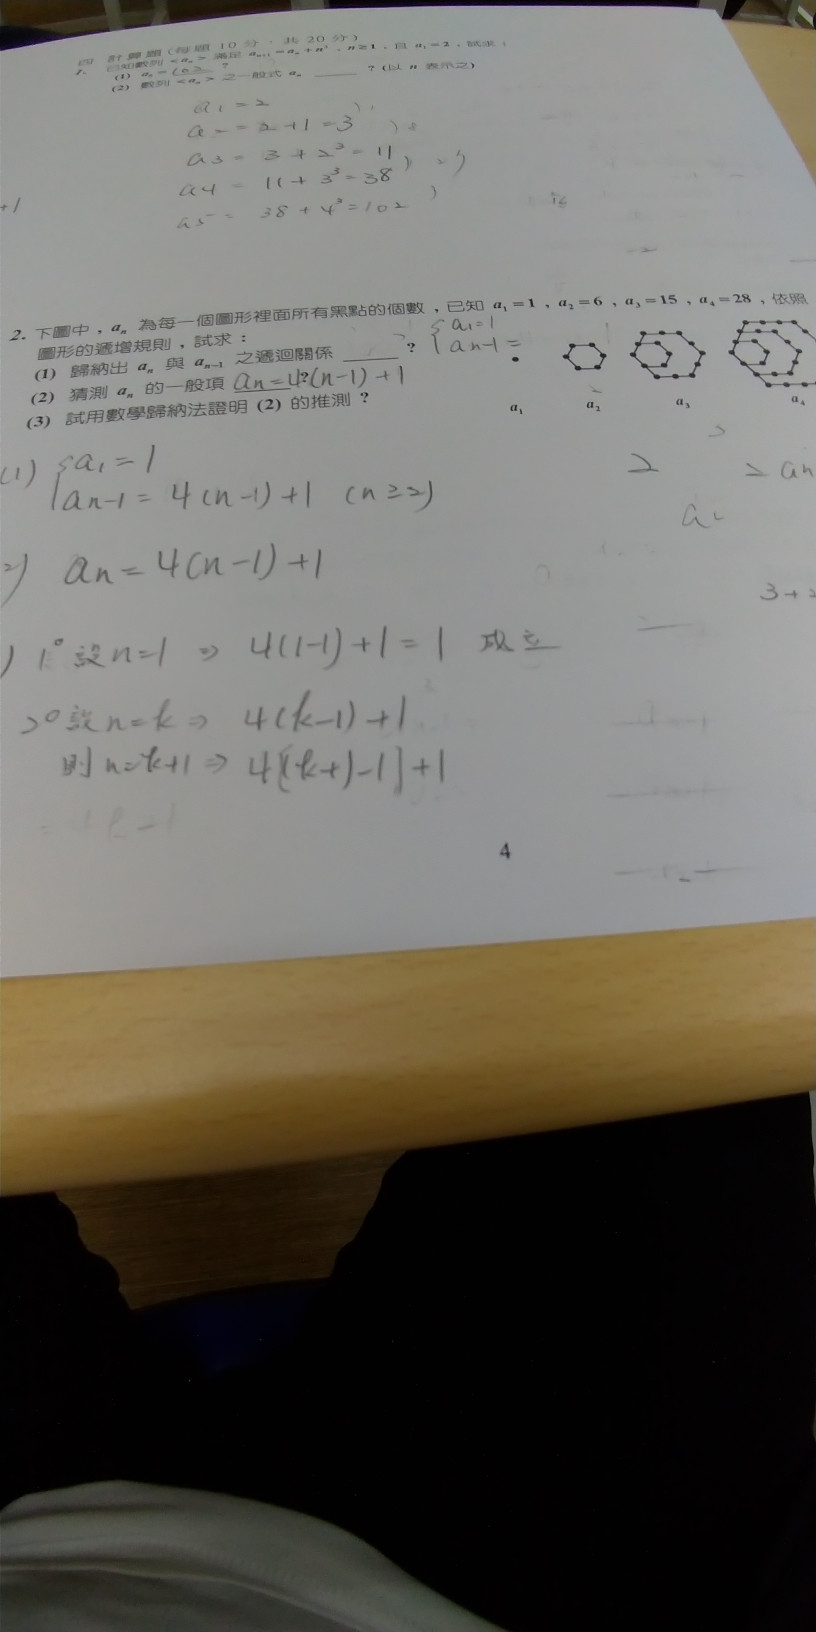 四 計算題(每題10分,共20分)
1. 已知數列<aₙ>滿足 aₙ₊₁=aₙ+n³,n≥1,且 a₁=2,試求:
(1) a₅=102?
(2) 數列<aₙ>之一般式 aₙ ______?(以 n 表示之)
a₁=2
a₂=2+1=3
a₃=3+2³=11
a₄=11+3³=38
a₅=38+4³=102
+1
2. 下圖中,aₙ 為每一個圖形裡面所有黑點的個數,已知 a₁=1,a₂=6,a₃=15,a₄=28,依照
圖形的遞增規則,試求:
(1) 歸納出 aₙ 與 aₙ₋₁ 之遞迴關係 ______?
{a₁=1
aₙ₋₁=
(2) 猜測 aₙ 的一般項 aₙ=4(n-1)+1?
(3) 試用數學歸納法證明 (2) 的推測?
a₁ a₂ a₃ a₄
(1) {a₁=1
aₙ₋₁=4(n-1)+1 (n≥2)
2) aₙ=4(n-1)+1
) 1° 設n=1 ⇒ 4(1-1)+1=1 成立
2° 設n=k ⇒ 4(k-1)+1
則n=k+1 ⇒ 4[(k+)-1]+1
4